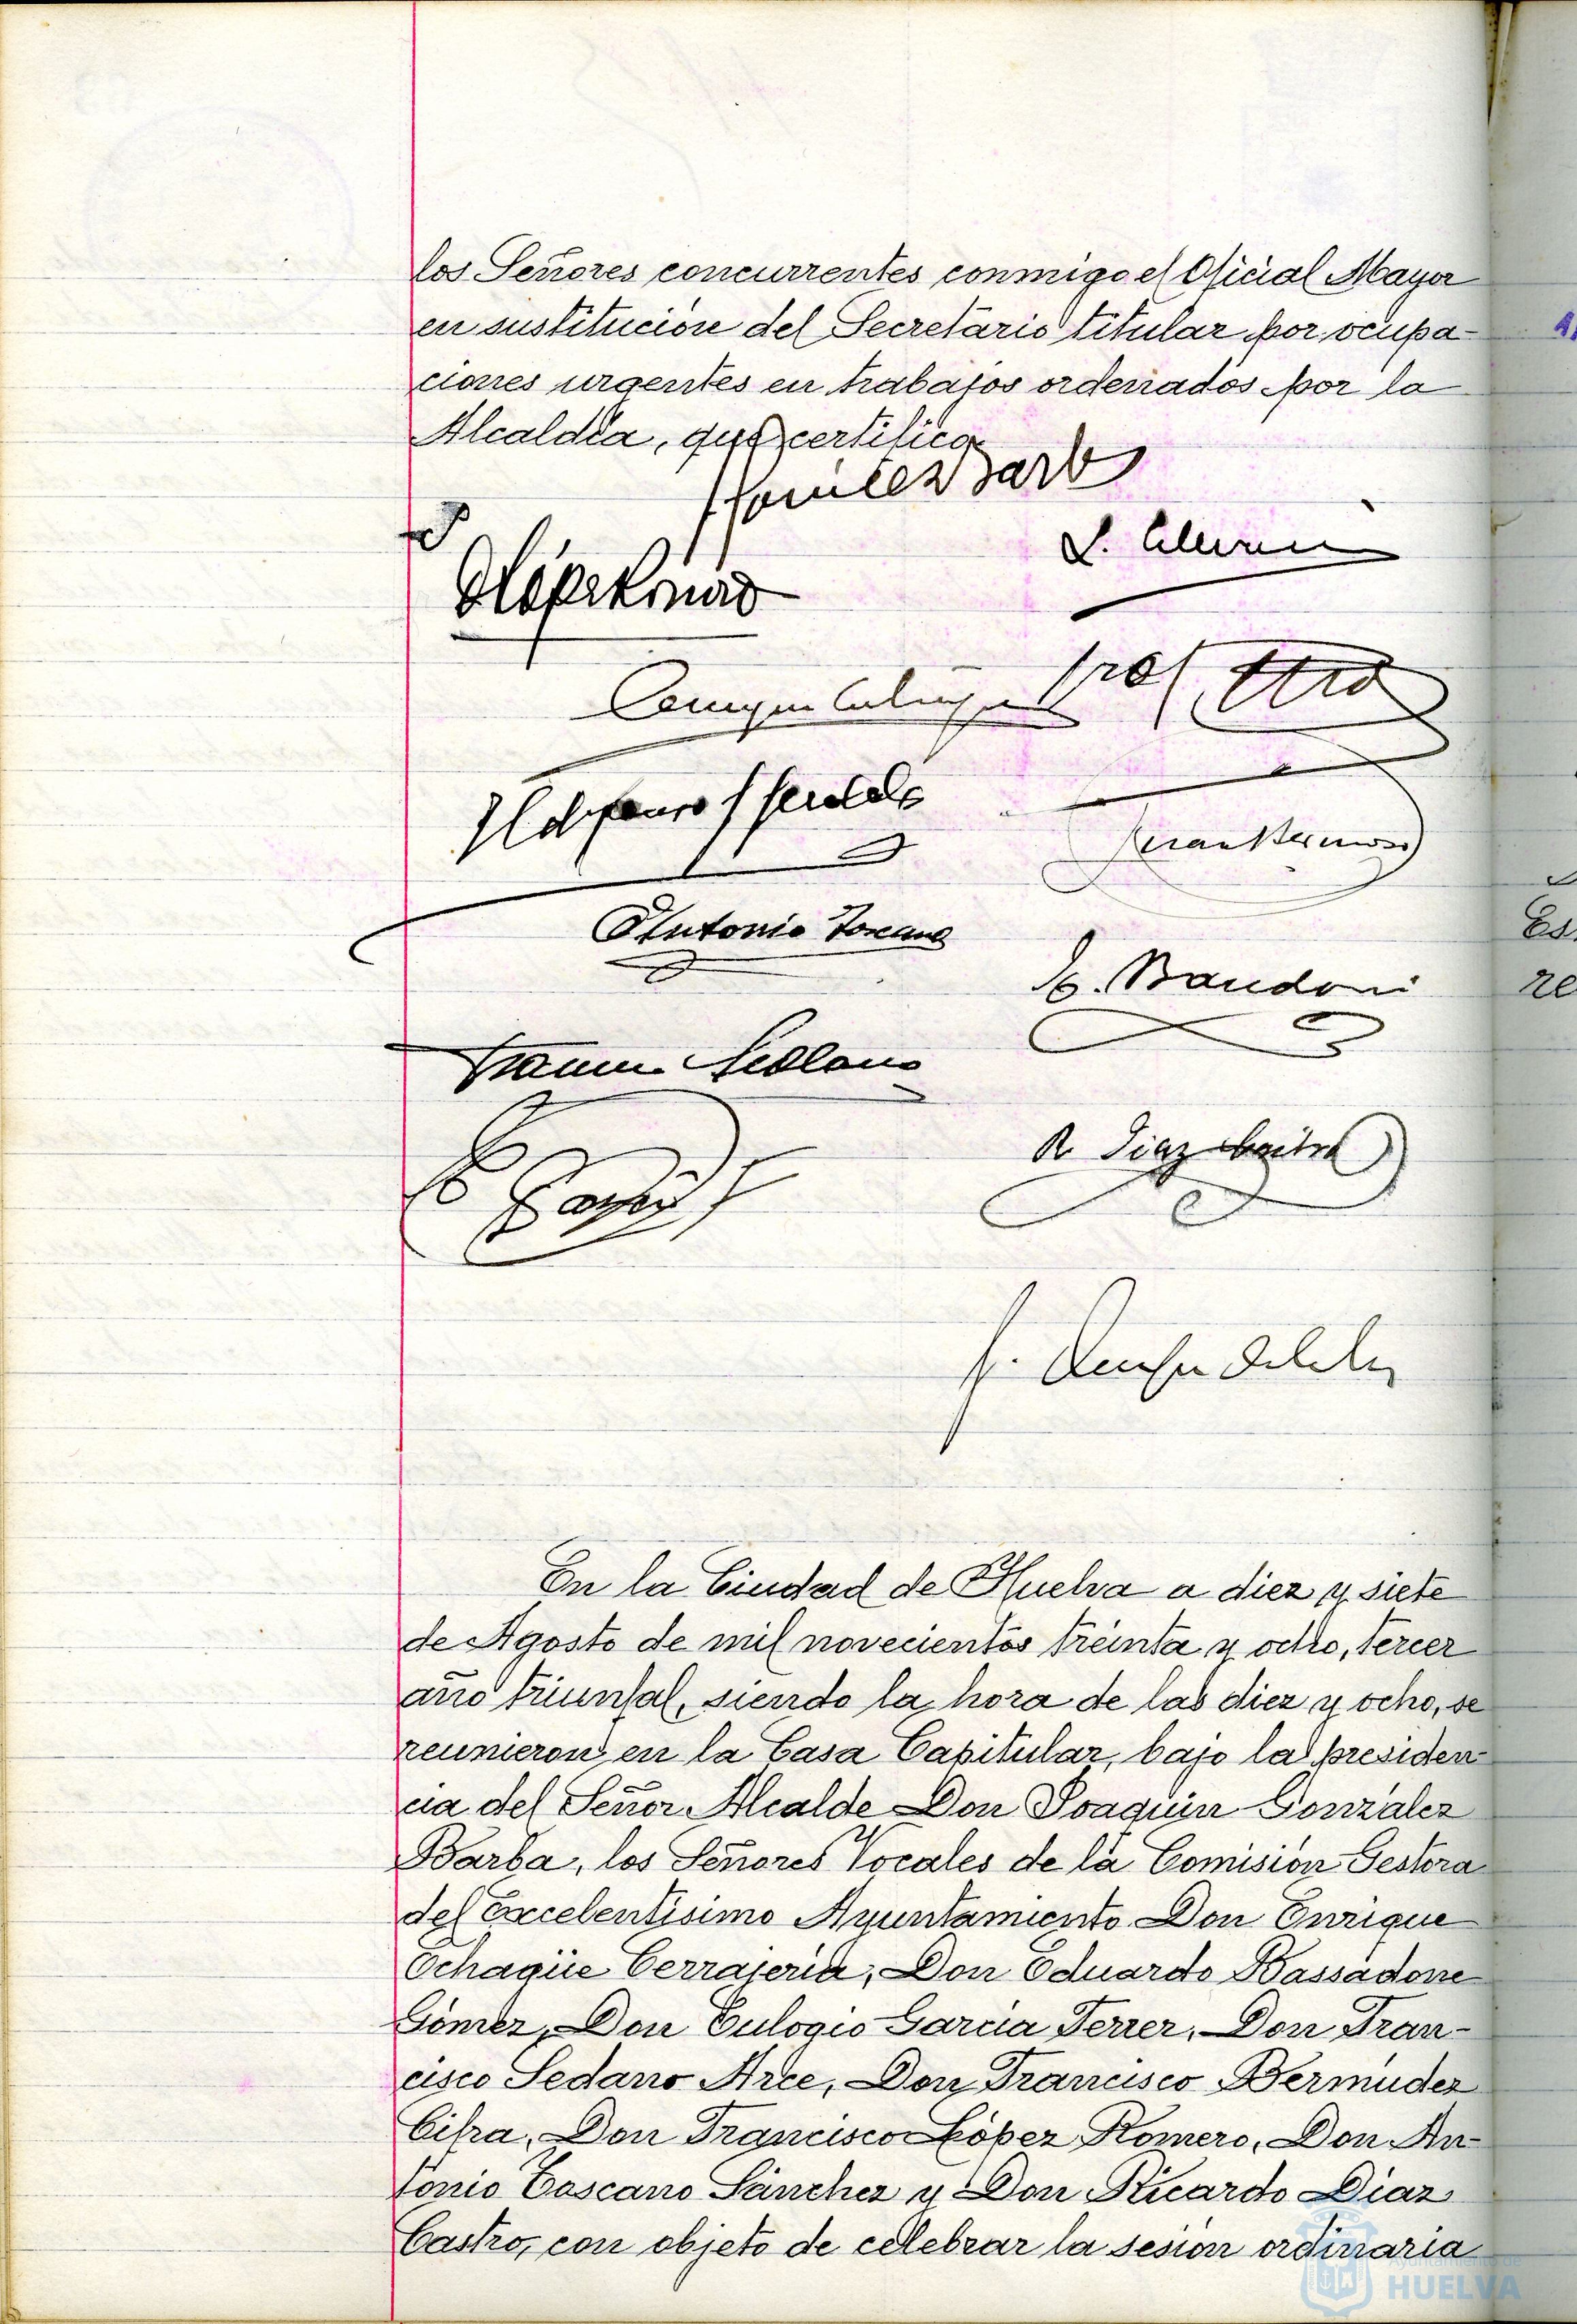 los Señores concurrentes conmigo el Oficial Mayor
en sustitución del Secretario titular por ocupa-
ciones urgentes en trabajos ordenados por la
Alcaldía, que certifico.
Antonio Toscano
R Diaz Castro
En la Ciudad de Huelva a diez y siete
de Agosto de mil novecientos treinta y ocho, tercer
año triunfal, siendo la hora de las diez y ocho, se
reunieron en la Casa Capitular, bajo la presiden-
cia del Señor Alcalde Don Joaquin González
Barba, los Señores Vocales de la Comisión Gestora
del Excelentísimo Ayuntamiento Don Enrique
Ochagüe Cerrajería, Don Eduardo Bassadone
Gómez, Don Eulogio García Ferrer, Don Fran-
cisco Sedano Arce, Don Francisco Bermúdez
Cifra, Don Francisco López Romero, Don An-
tonio Toscano Sánchez y Don Ricardo Díaz
Castro, con objeto de celebrar la sesión ordinaria
Ayuntamiento de
HUELVA
Es.
re